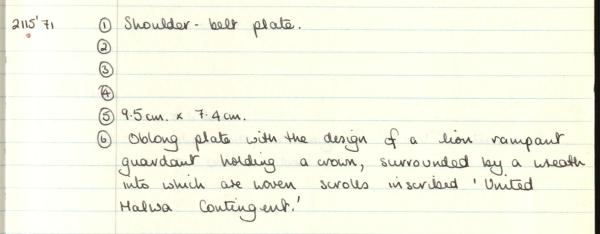 2115'71 ① Shoulder-belt plate.
②
③
④
⑤ 9.5cm. x 7.4cm.
⑥ Oblong plate with the design of a lion rampant
guardant holding a crown, surrounded by a wreath
into which are woven scrolls inscribed 'United
Malwa Contingent.'